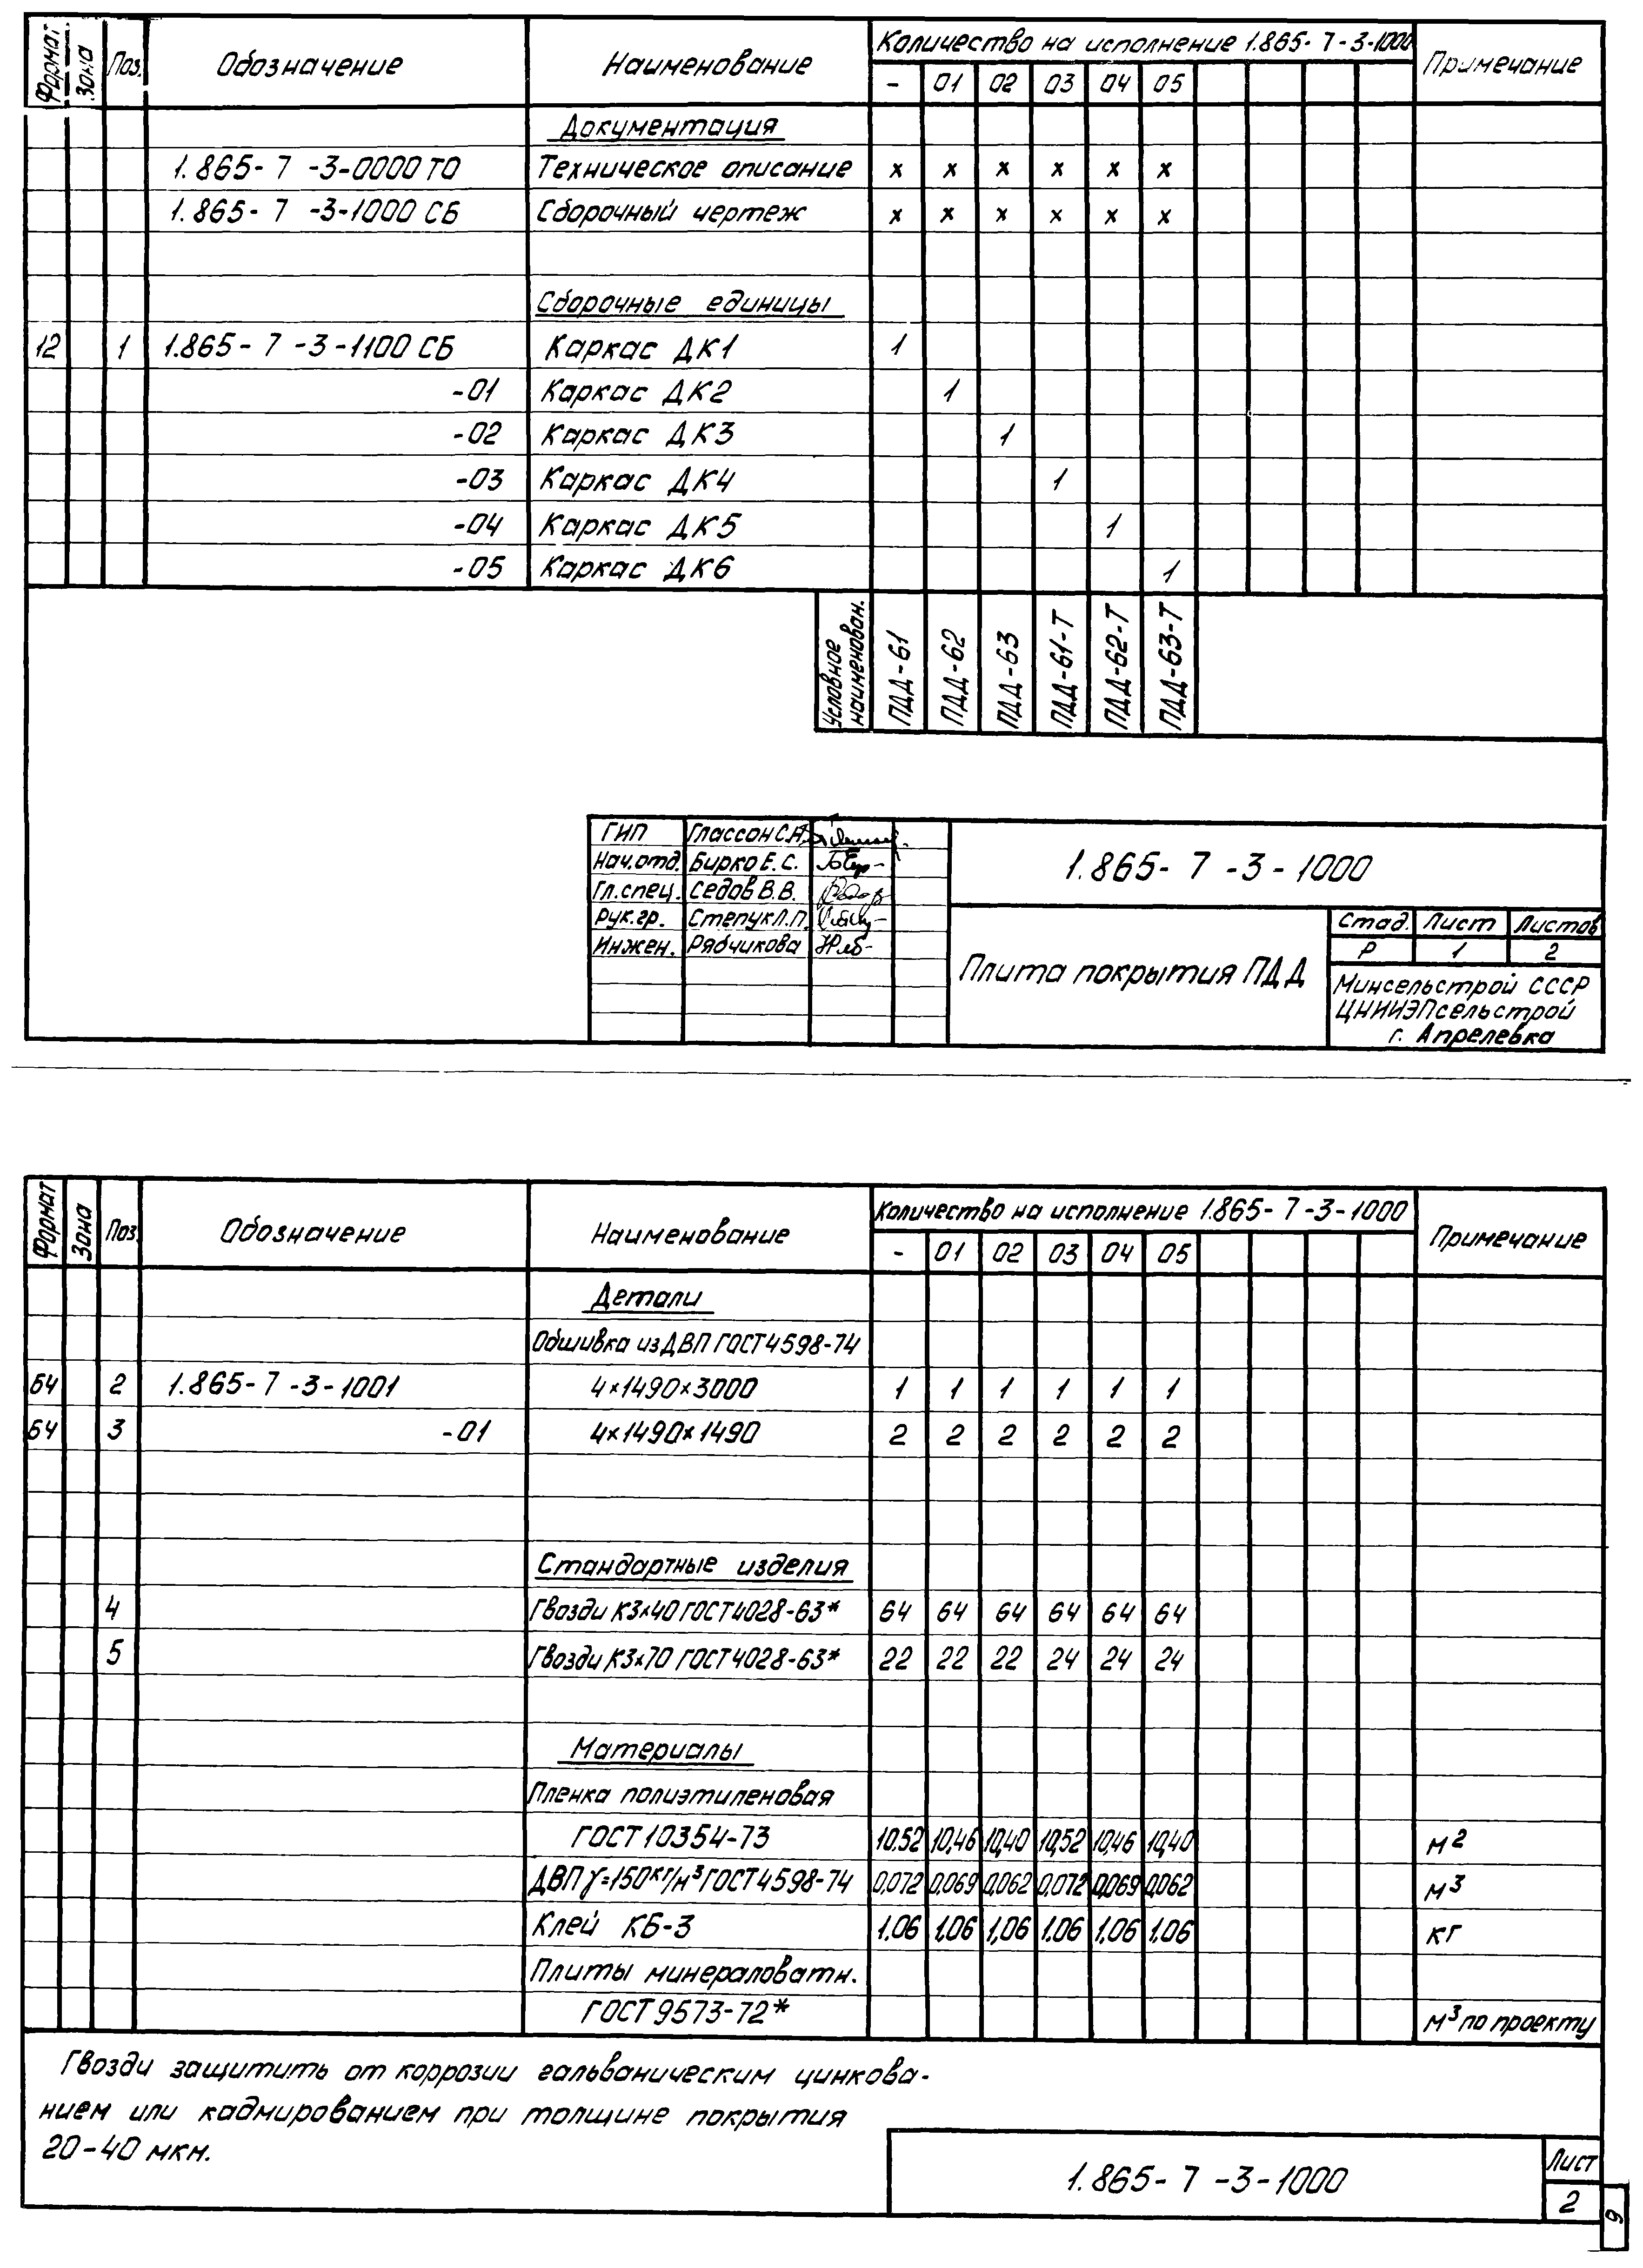 Формат Зона Поз. Обозначение Наименование Количество на исполнение 1.865-7-3-1000 Примечание
- 01 02 03 04 05
Документация
1.865-7-3-0000 ТО Техническое описание x x x x x x
1.865-7-3-1000 СБ Сборочный чертеж x x x x x x
Сборочные единицы
12 1 1.865-7-3-1100 СБ Каркас ДК1 1
-01 Каркас ДК2 1
-02 Каркас ДК3 1
-03 Каркас ДК4 1
-04 Каркас ДК5 1
-05 Каркас ДК6 1
Условное наименован. ПДД-61 ПДД-62 ПДД-63 ПДД-61-Т ПДД-62-Т ПДД-63-Т
ГИП Глассон С.Н.
Нач.отд. Бирко Е.С.
Гл.спец. Седов В.В.
Рук.гр. Степук Л.П.
Инжен. Рябчикова
1.865-7-3-1000
Плита покрытия ПДД
Стад. Лист Листов
Р 1 2
Минсельстрой СССР
ЦНИИЭПсельстрой
г. Апрелевка
Формат Зона Поз. Обозначение Наименование Количество на исполнение 1.865-7-3-1000 Примечание
- 01 02 03 04 05
Детали
Обшивка из ДВП ГОСТ 4598-74
БЧ 2 1.865-7-3-1001 4×1490×3000 1 1 1 1 1 1
БЧ 3 -01 4×1490×1490 2 2 2 2 2 2
Стандартные изделия
4 Гвозди К3×40 ГОСТ 4028-63* 64 64 64 64 64 64
5 Гвозди К3×70 ГОСТ 4028-63* 22 22 22 24 24 24
Материалы
Пленка полиэтиленовая
ГОСТ 10354-73 10.52 10,46 10,40 10,52 10,46 10,40 м²
ДВП γ=150 кг/м³ ГОСТ 4598-74 0,072 0,069 0,062 0,072 0,069 0,062 м³
Клей КБ-3 1,06 1,06 1,06 1,06 1,06 1,06 кг
Плиты минераловатн.
ГОСТ 9573-72* м³ по проекту
Гвозди защитить от коррозии гальваническим цинкова-
нием или кадмированием при толщине покрытия
20-40 мкм.
1.865-7-3-1000
Лист
2
9